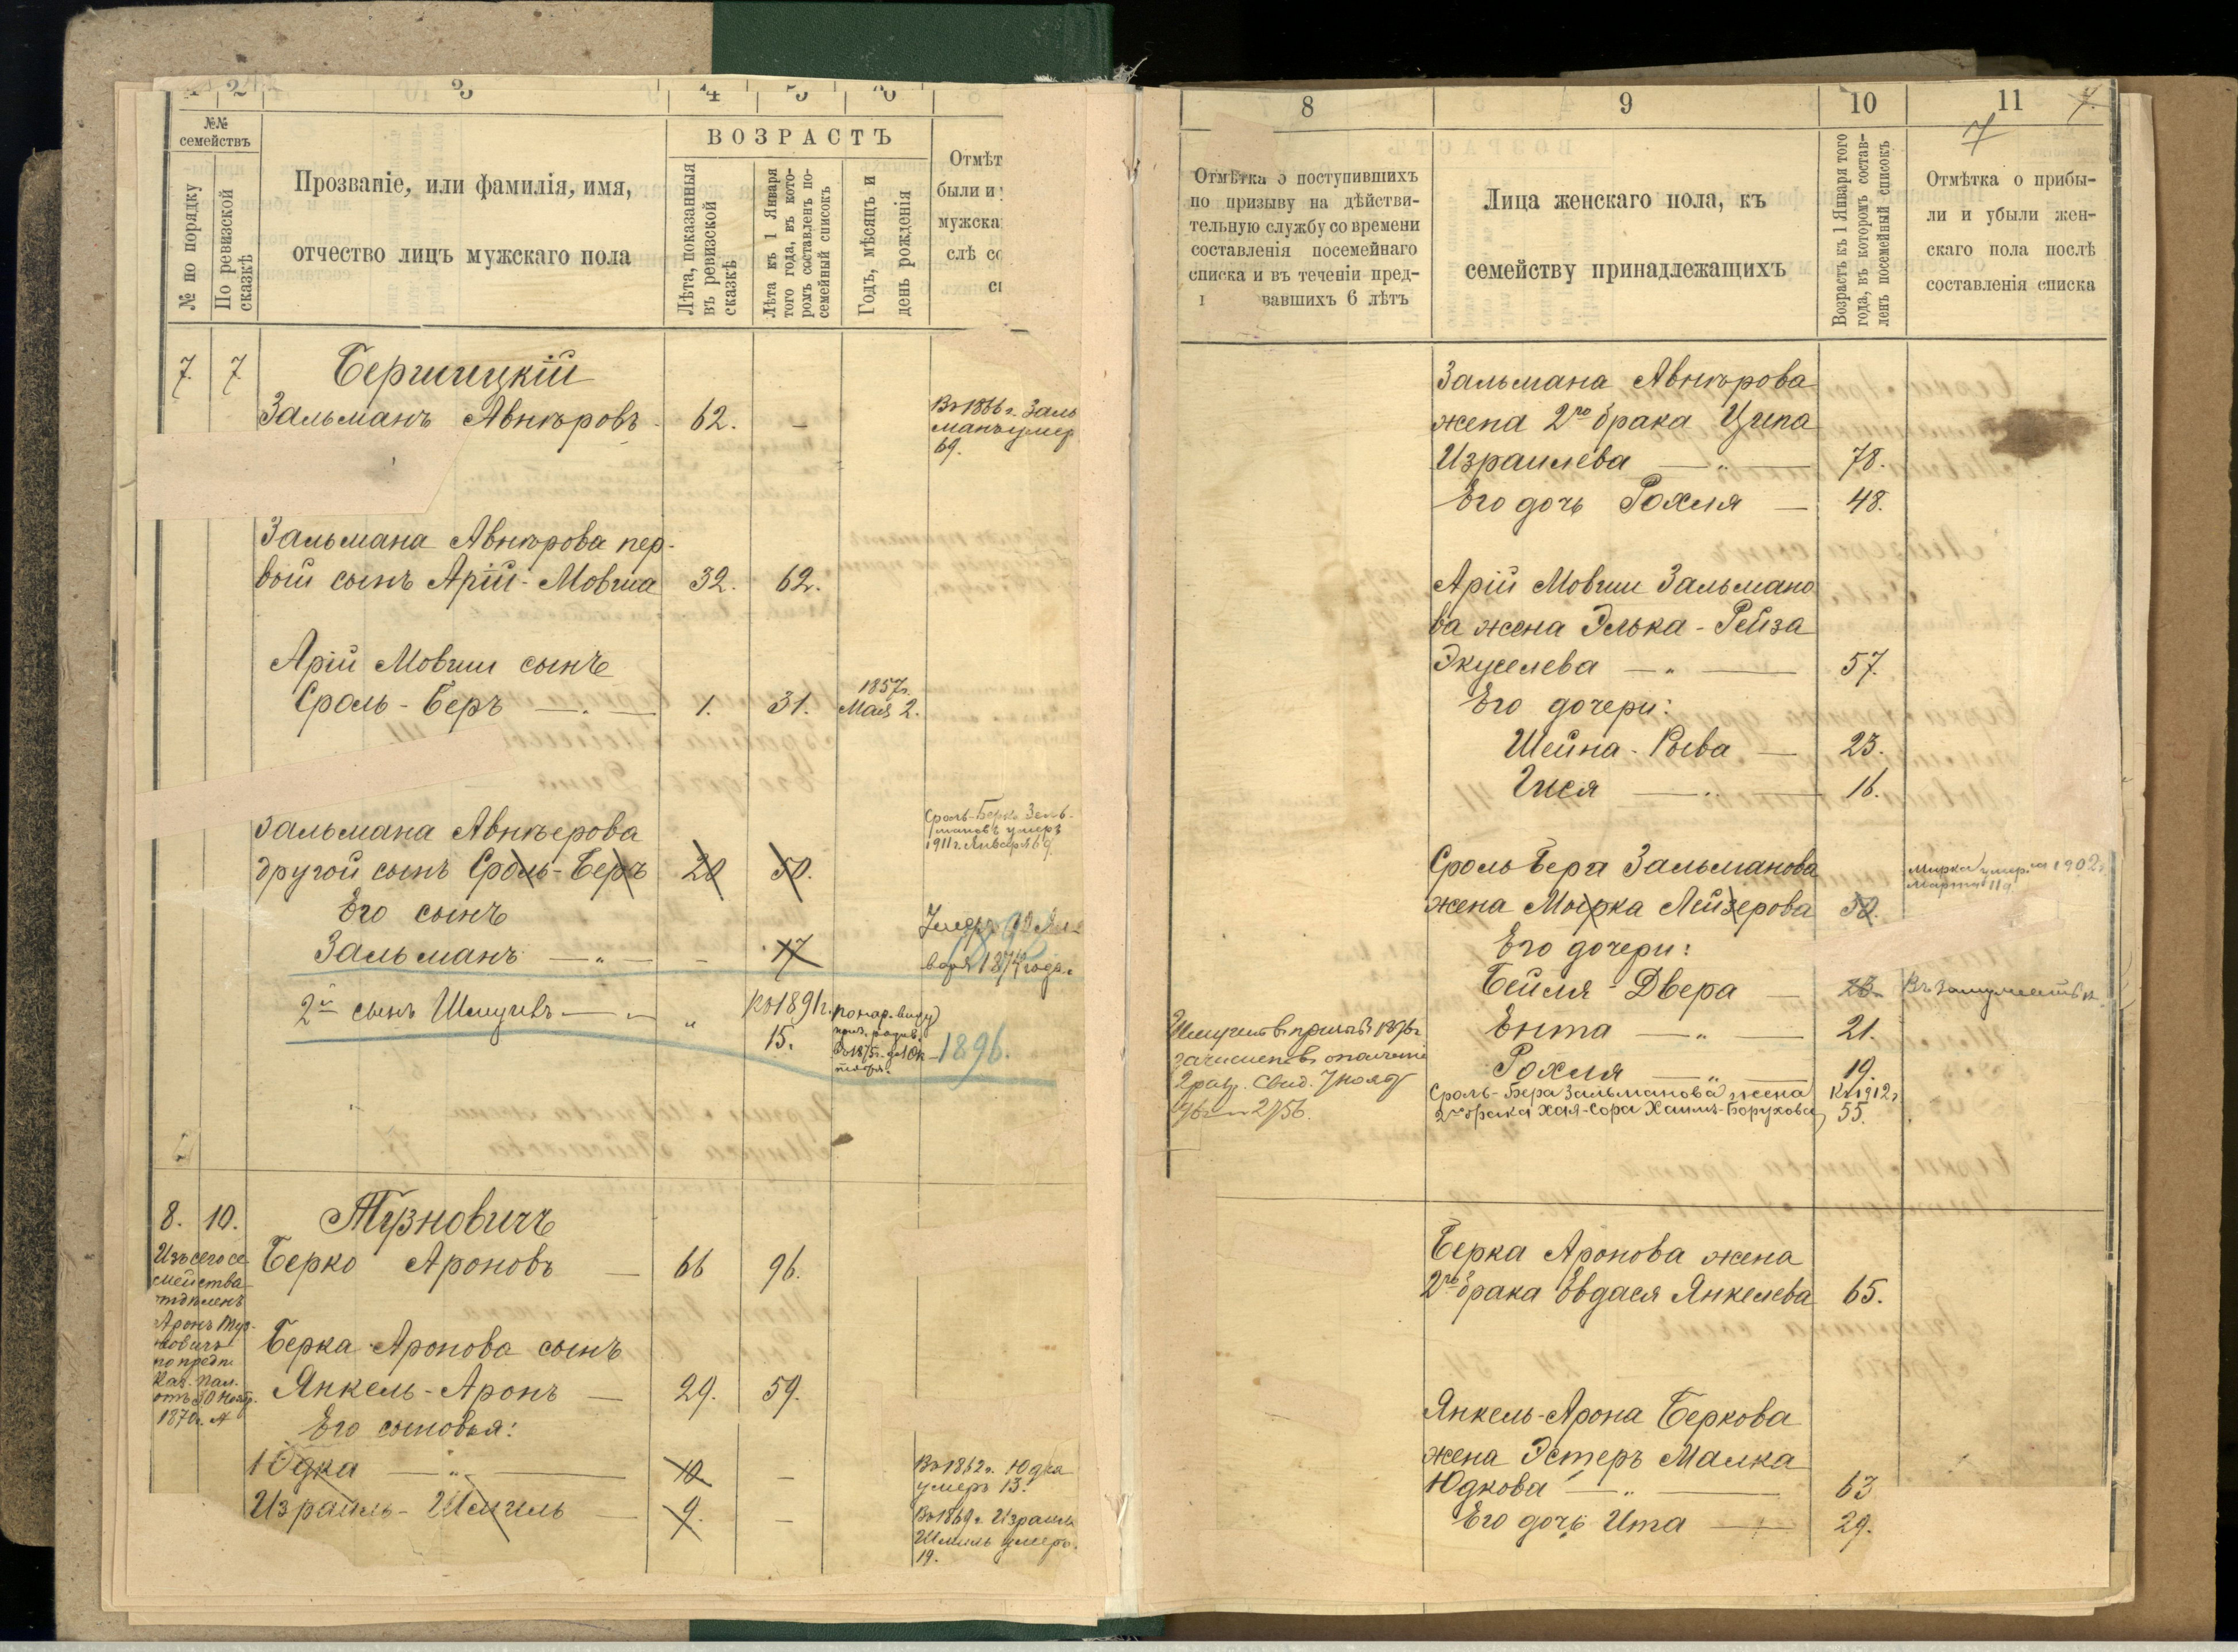 2 3 4 5 6
№№
семействъ
№ по порядку
По ревизской
сказкѣ
Прозваніе, или фамилія, имя,
отчество лицъ мужскаго пола
ВОЗРАСТЪ
Лѣта, показанныя
въ ревизской
сказкѣ
Лѣта къ 1 Января
того года, въ кото-
ромъ составленъ по-
семейный списокъ
Годъ, мѣсяцъ и
день рожденія
Отмѣт
были и
мужска
слѣ со
сп
7. 7
Бершицкій
Зальманъ Авнѣровъ 62. —
Въ 1866 г. Заль
манъ умер
69.
Зальмана Авнѣрова пер-
вый сынъ Арій-Мовша 32. 62.
Арій Мовши сынъ
Сроль-Беръ 1. 31.
1857 г.
Мая 2.
Зальмана Авнѣерова
другой сынъ Сроль-Беръ 20 50.
Сроль-Берко Заль-
мановъ умеръ
1911 г. Января 6 д.
Его сынъ
Зальманъ — 17
варя 1874 года.
2й сынъ — „
Къ 1891 г.
15.
по нар. виду
1896.
8. 10.
Турновичъ
Берко Ароновъ — 66 96.
Изъ сего се
мейства
Аронъ Тур-
новичъ
по предп.
Каз. Пал.
отъ 30 Нояб.
1870 г.
Берка Аронова сынъ
Янкель-Аронъ — 29. 59.
Его сыновья:
Юдка — 10 —
Въ 1862 г. Юдка
умеръ 13.
Израиль-Шмуль — 9. —
Въ 1869 г. Израиль
Шмуль умеръ.
19.
8 9 10 11 7.
7
Отмѣтка о поступившихъ
по призыву на дѣйстви-
тельную службу со времени
составленія посемейнаго
списка и въ теченіи пред-
вавшихъ 6 лѣтъ
Лица женскаго пола, къ
семейству принадлежащихъ
Возрастъ къ 1 Января того
года, въ которомъ состав-
ленъ посемейный списокъ
Отмѣтка о прибы-
ли и убыли жен-
скаго пола послѣ
составленія списка
Зальмана Авнѣрова
жена 2го брака Ципа
Израилева — „ — 78.
Его дочь Рохля — 48.
Арій Мовши Зальмано
ва жена Элька-Рейза
Экуселева — „ — 57.
Его дочери:
Шейна-Рыва — 23.
Гися — „ — 16.
Сроль Бера Зальманова
жена Мырка Лейзерова 50.
Мирка умерла 1902 г.
Марта 11 д.
Его дочери:
Бейля-Двера — 23.
Въ замужествѣ
Ента — „ — 21.
Рохля — „ — 19.
Сроль-Бера Зальманова жена
2го брака Хая-Сора Хаимъ-Борухова,
Къ 1912 г.
55.
2756.
Берка Аронова жена
2го брака Евдася Янкелева 65.
Янкель-Арона Беркова
жена Эстеръ Малка
Юдкова — „ — 63
Его дочь Ита — 29.